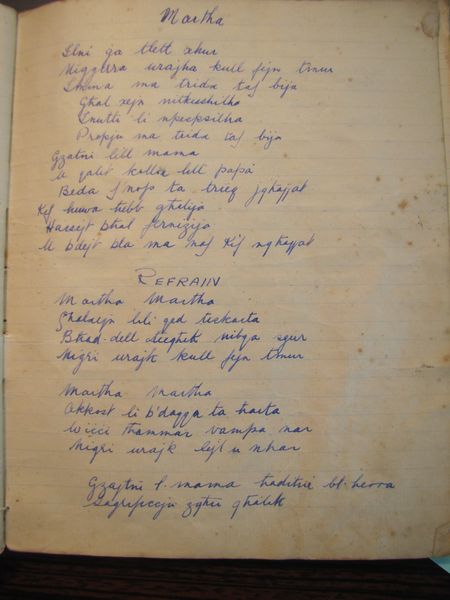 Martha
Ilni ga tlett xhur
Niggerra urajha kull fejn tmur
Imma ma trida taf bija
Ghal xejn nitkesshilha
Inutli li npespsilha
Propju ma trida taf bija
Gzatni lill mama
U qalet kollox lill papá
Beda f'nofs ta trieq jghajjat
Kif huwa hebb ghalija
Hassejt bhal fernizija
U bdejt bla ma naf kif nghajjat
REFRAIN
Martha Martha
Ghalxejn lili qed teskarta
Bhad-dell tieghek nibqa sgur
Nigri urajk kull fejn tmur
Martha Martha
Akkost li b'daqqa ta harta
Wicci thammar vampa nar
Nigri urajk lejl u nhar
Gzajtni l. mama haditni bl-herra
Sagrificcju zghir ghalik